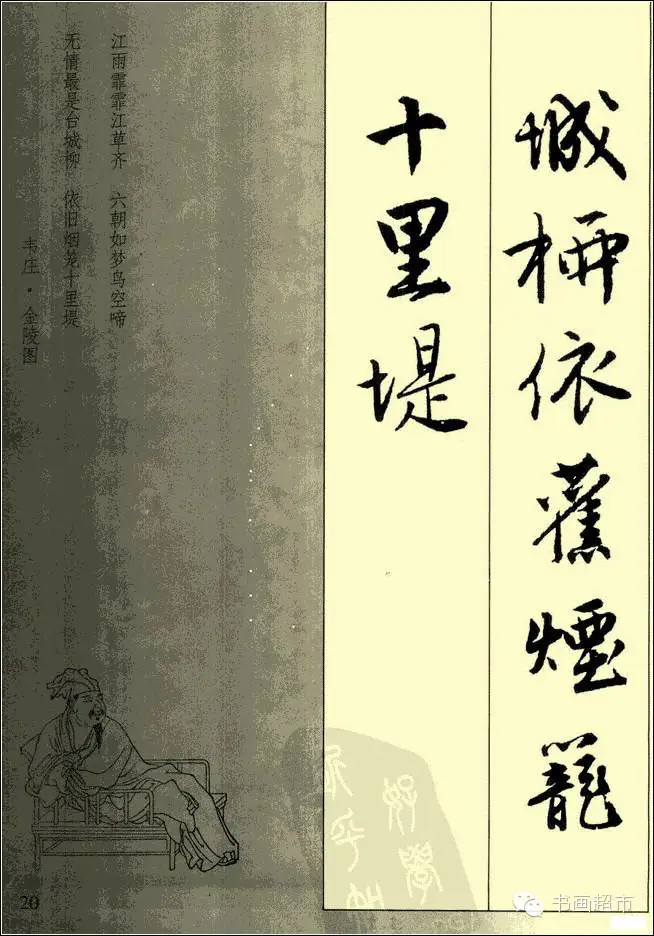 城柳依舊煙籠
十里堤
江雨霏霏江草齐 六朝如梦鸟空啼
无情最是台城柳 依旧烟笼十里堤
韦庄·金陵图
好學
20
书画超市